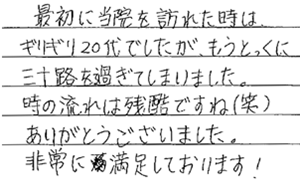 最初に当院を訪れた時は
ギリギリ20代でしたが、もうとっくに
三十路を過ぎてしまいました。
時の流れは残酷ですね(笑)
ありがとうございました。
非常に満足しております!